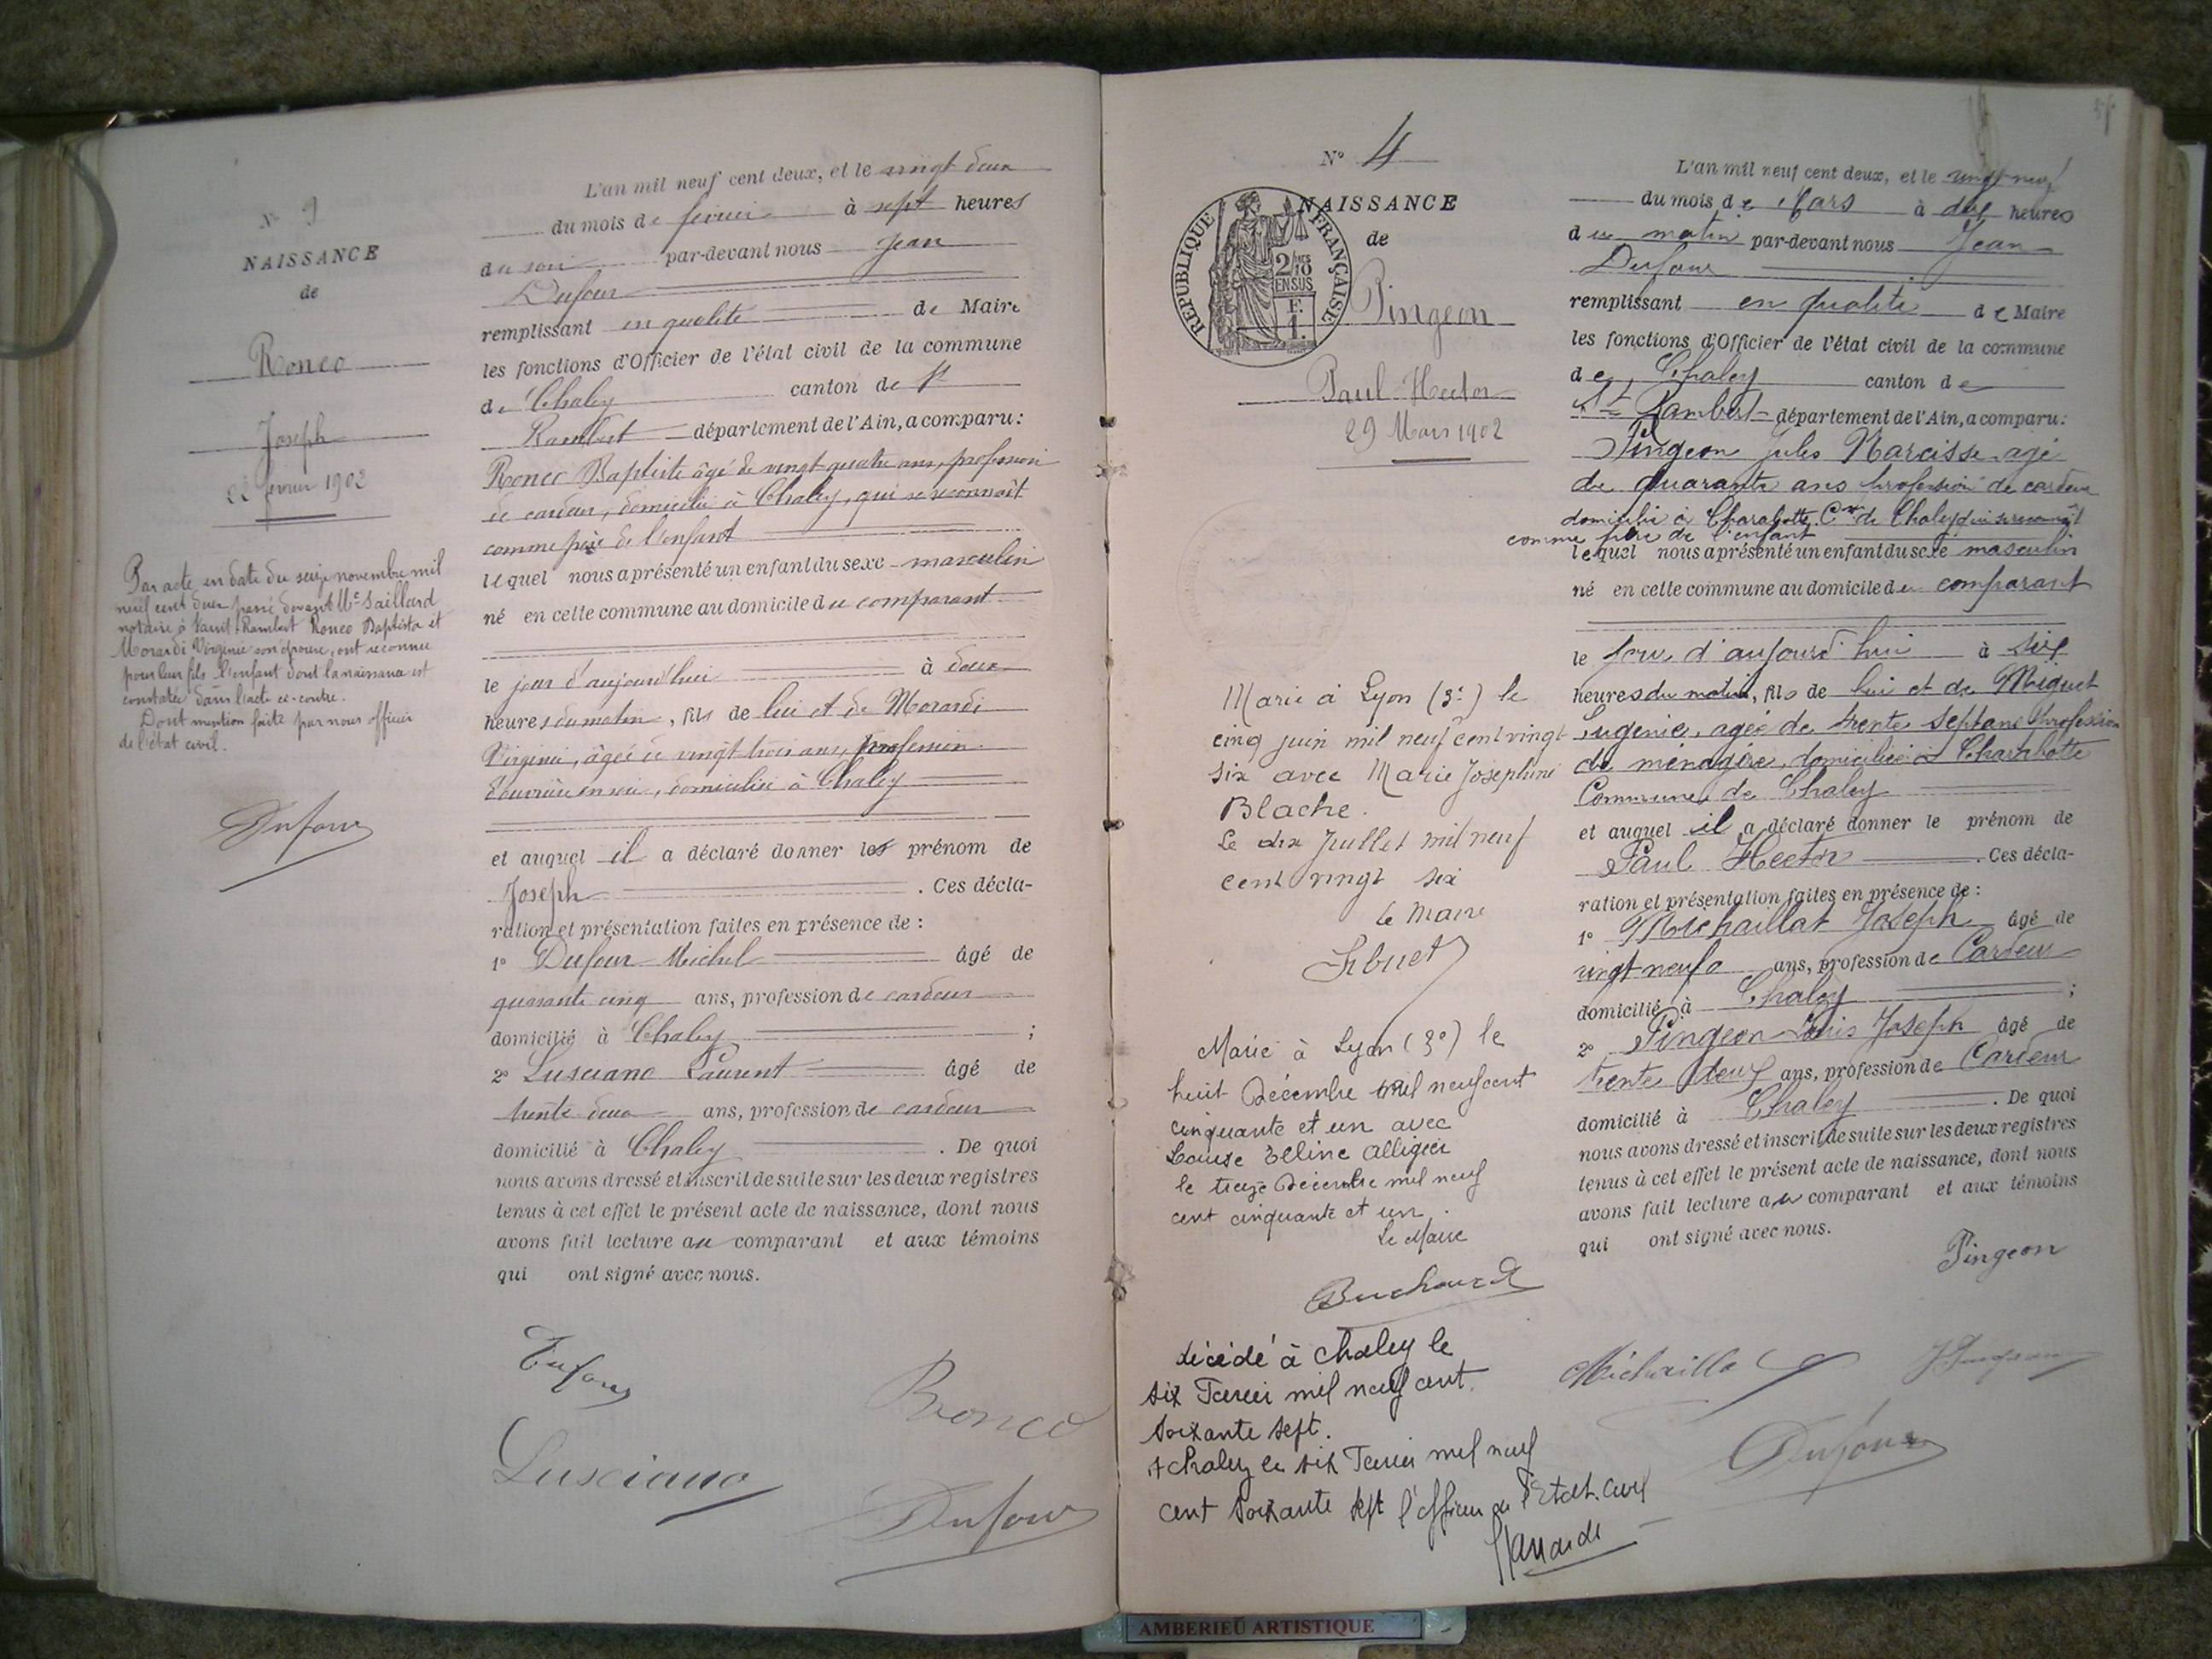 N° 3
NAISSANCE
de
Ronco
Joseph
22 février 1902
Par acte en date du seize novembre mil
neuf cent deux passé devant Me Saillard
notaire à Saint-Rambert Ronco Baptista et
Morardi Virginie son épouse, ont reconnu
pour leur fils l'enfant dont la naissance est
constatée dans l'acte ci-contre.
Dont mention faite par nous officier
de l'état civil.
Dufour
L'an mil neuf cent deux, et le vingt deux
du mois de février à sept heures
du soir par-devant nous Jean
Dufour
remplissant en qualité de Maire
les fonctions d'Officier de l'état civil de la commune
de Chaley canton de St
Rambert département de l'Ain, a comparu:
Ronco Baptiste âgé de vingt-quatre ans, profession
de cardeur, domicilié à Chaley, qui se reconnaît
comme père de l'enfant
lequel nous a présenté un enfant du sexe masculin
né en cette commune au domicile du comparant
le jour d'aujourd'hui à deux
heures du matin, fils de lui et de Morardi
Virginie, âgée de vingt trois ans, profession
d'ouvrière en soie, domiciliée à Chaley
et auquel il a déclaré donner les prénom de
Joseph . Ces décla-
ration et présentation faites en présence de :
1° Dufour Michel âgé de
quarante cinq ans, profession de cardeur
domicilié à Chaley ;
2° Lusciano Laurent âgé de
trente deux ans, profession de cardeur
domicilié à Chaley . De quoi
nous avons dressé et inscrit de suite sur les deux registres
tenus à cet effet le présent acte de naissance, dont nous
avons fait lecture au comparant et aux témoins
qui ont signé avec nous.
Dufour
Ronco
Lusciano
Dufour
N° 4
NAISSANCE
de
RÉPUBLIQUE FRANÇAISE
2/10
EN SUS
F.
1.
Pingeon
Paul Hector
29 Mars 1902
Marié à Lyon (3e) le
cinq juin mil neuf cent vingt
six avec Marie Josephine
Blache.
Le dix Juillet mil neuf
cent vingt six
Le Maire
Marié à Lyon (3e) le
huit Décembre mil neuf cent
cinquante et un avec
Louise Elline Alligier
le treize Décembre mil neuf
cent cinquante et un.
Le Maire
décédé à Chaley le
six Janvier mil neuf cent
soixante sept.
A Chaley le six Janvier mil neuf
cent soixante sept l'officier de l'Etat civil
L'an mil neuf cent deux, et le vingt neuf
du mois de Mars à dix heures
du matin par-devant nous Jean
Dufour
remplissant en qualité de Maire
les fonctions d'Officier de l'état civil de la commune
de Chaley canton de
St Rambert département de l'Ain, a comparu:
Pingeon Jules Narcisse agé
de quarante ans profession de cardeur
domicilié à Charabotte Cne de Chaley qui se reconnaît
comme père de l'enfant
lequel nous a présenté un enfant du sexe masculin
né en cette commune au domicile du comparant
le jour d'aujourd'hui à six
heures du matin, fils de lui et de Miguet
Eugénie, agée de trente sept ans profession
de ménagère, domiciliée à Charabotte
Commune de Chaley
et auquel il a déclaré donner le prénom de
Paul Hector . Ces décla-
ration et présentation faites en présence de :
1° Michaillat Joseph âgé de
vingt neuf ans, profession de Cardeur
domicilié à Chaley ;
2° Pingeon Louis Joseph âgé de
trente deux ans, profession de Cardeur
domicilié à Chaley . De quoi
nous avons dressé et inscrit de suite sur les deux registres
tenus à cet effet le présent acte de naissance, dont nous
avons fait lecture au comparant et aux témoins
qui ont signé avec nous.
Pingeon
Dufour
AMBERIEU ARTISTIQUE